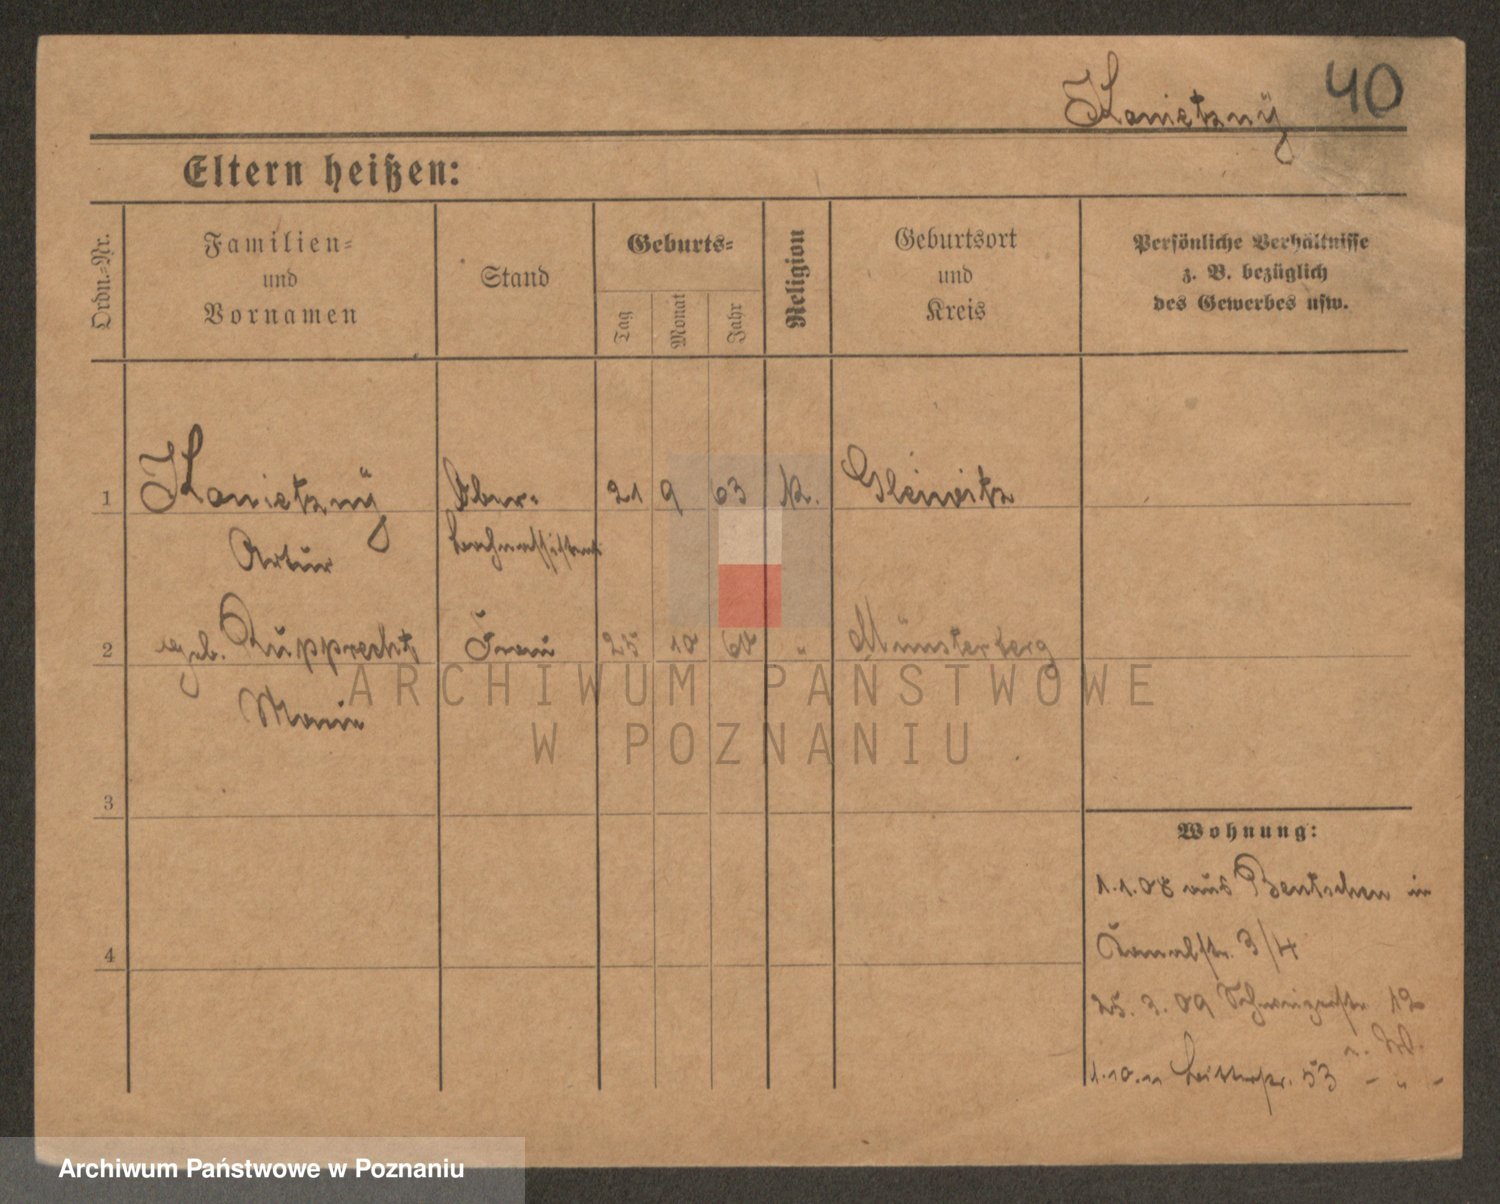 40
Konietzný
Eltern heißen:
Ordn.=Nr.
Familien=
und
Vornamen
Stand
Geburts=
Tag
Monat
Jahr
Religion
Geburtsort
und
Kreis
Persönliche Verhältnisse
z. B. bezüglich
des Gewerbes usw.
1
Konietzný
Artur
Ober=
bahnassistent
21
9
63
K.
Gleiwitz
2
geb. Rupprecht
Marie
Frau
25
10
"
Münsterberg
3
4
Wohnung:
1.1.08 aus Bentschen in
Kanalstr. 3/4
25. 3. 09 12
1.10.11 53 – " –
ARCHIWUM PAŃSTWOWE
W POZNANIU
Archiwum Państwowe w Poznaniu